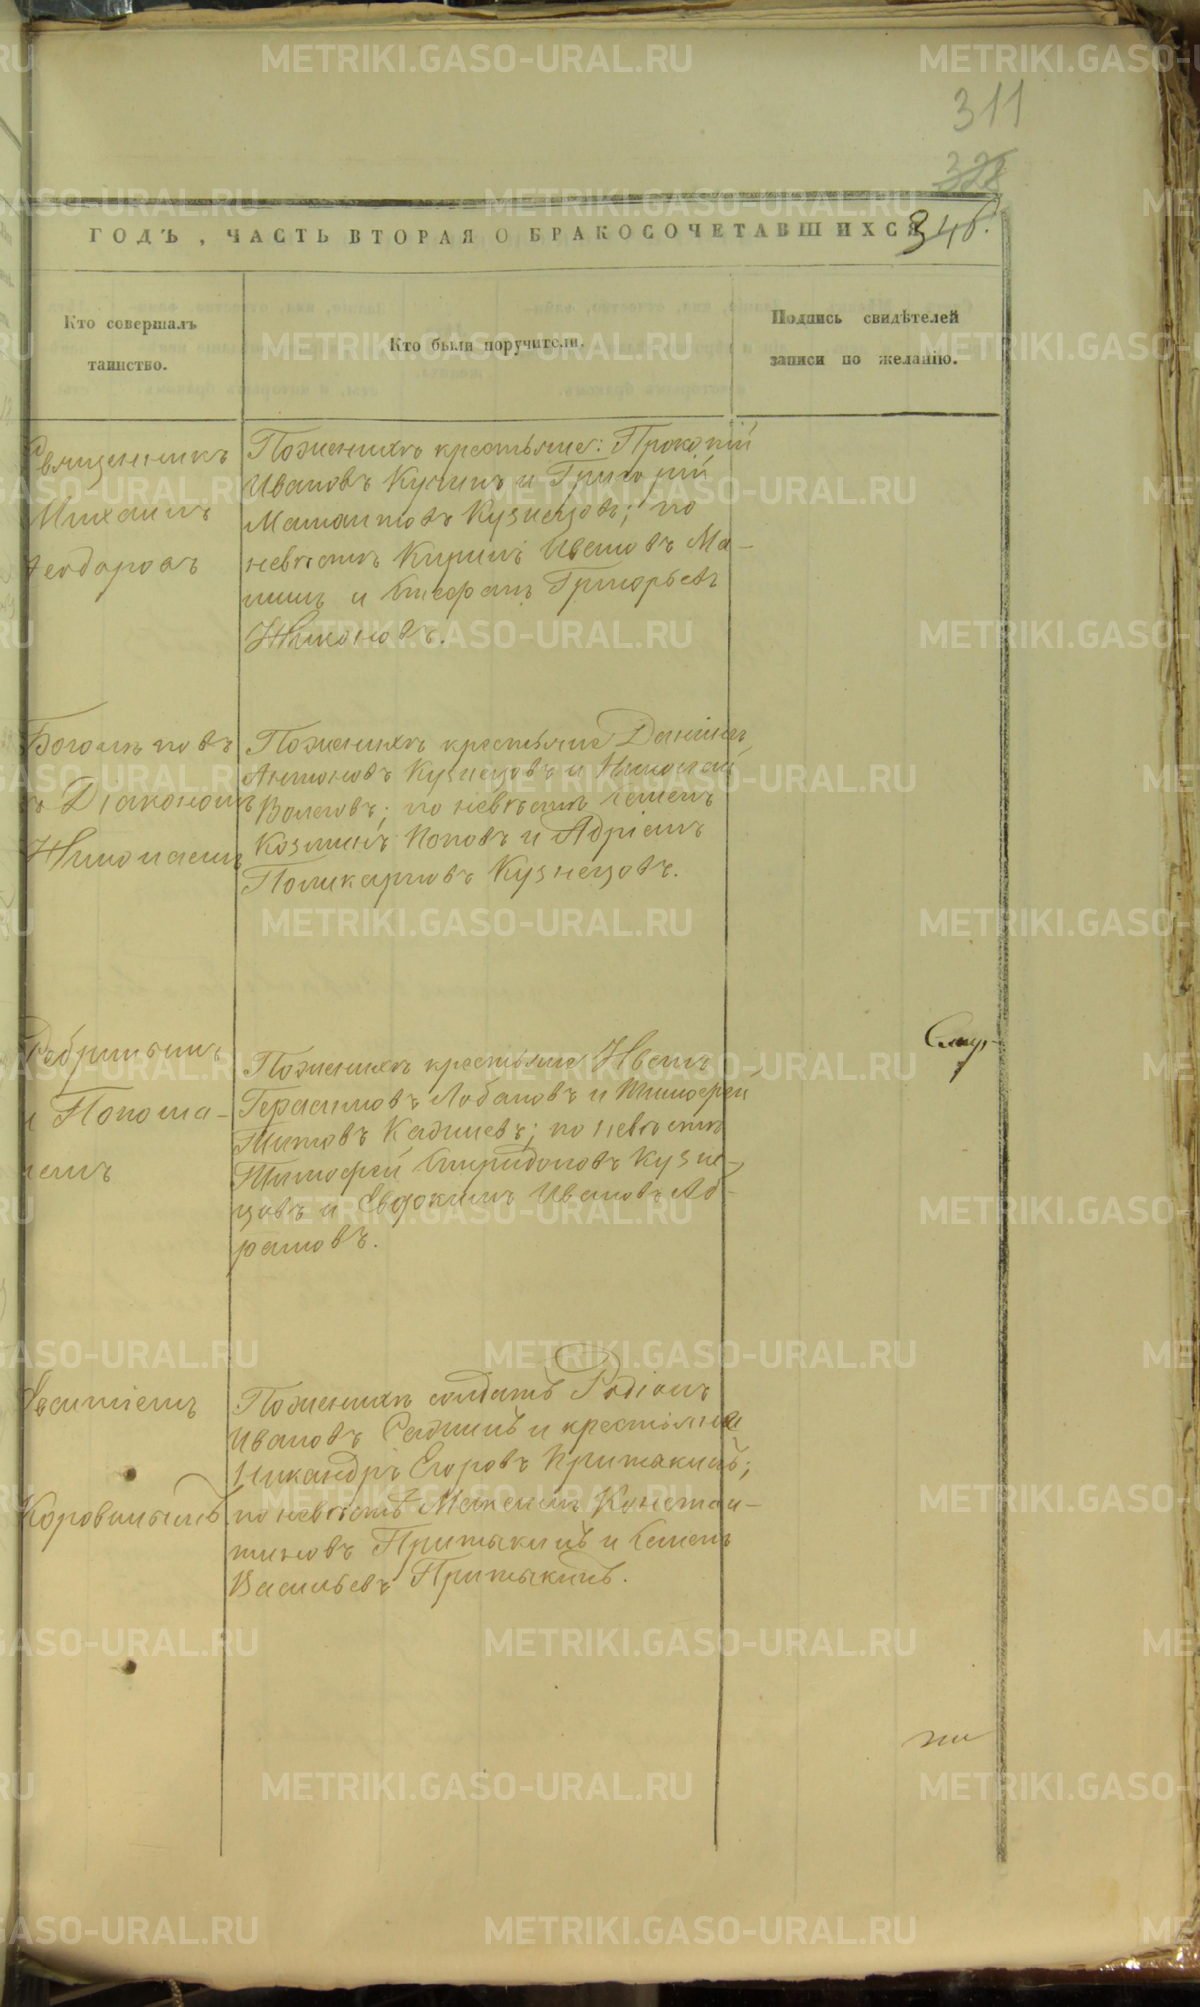 311
322
346.
ГОДЪ, ЧАСТЬ ВТОРАЯ О БРАКОСОЧЕТАВШИХСЯ
Кто совершалъ
таинство.
Кто были поручители.
Подпись свидѣтелей
записи по желанію.
Священникъ
Михаилъ
Ѳеодоровъ
По женихѣ крестьяне: Прокопій
Ивановъ и Григорій
Кузнецовъ; по
невѣстѣ Кирилъ Ивановъ Ма-
и Стефанъ Григорьевъ
Никоновъ.
съ Діакономъ
Николаемъ
По женихѣ крестьяне Даніилъ
Антоновъ Кузнецовъ и Николай
по невѣстѣ Семенъ
Козминъ Поповъ и Адріанъ
Поликарповъ Кузнецовъ.
и Понома-
ремъ
По женихѣ крестьяне Иванъ
Герасимовъ Лобановъ и Тимофей
Титовъ по невѣстѣ
Тимофей Спиридоновъ Кузне-
цовъ и Евдокимъ Ивановъ Аб-
рамовъ.
Коровинымъ
По женихѣ солдатъ Родіонъ
Ивановъ и крестьянинъ
Никандръ Егоровъ Притыкинъ;
по невѣстѣ Констан-
тиновъ Притыкинъ и Семенъ
Васильевъ Притыкинъ.
METRIKI.GASO-URAL.RU